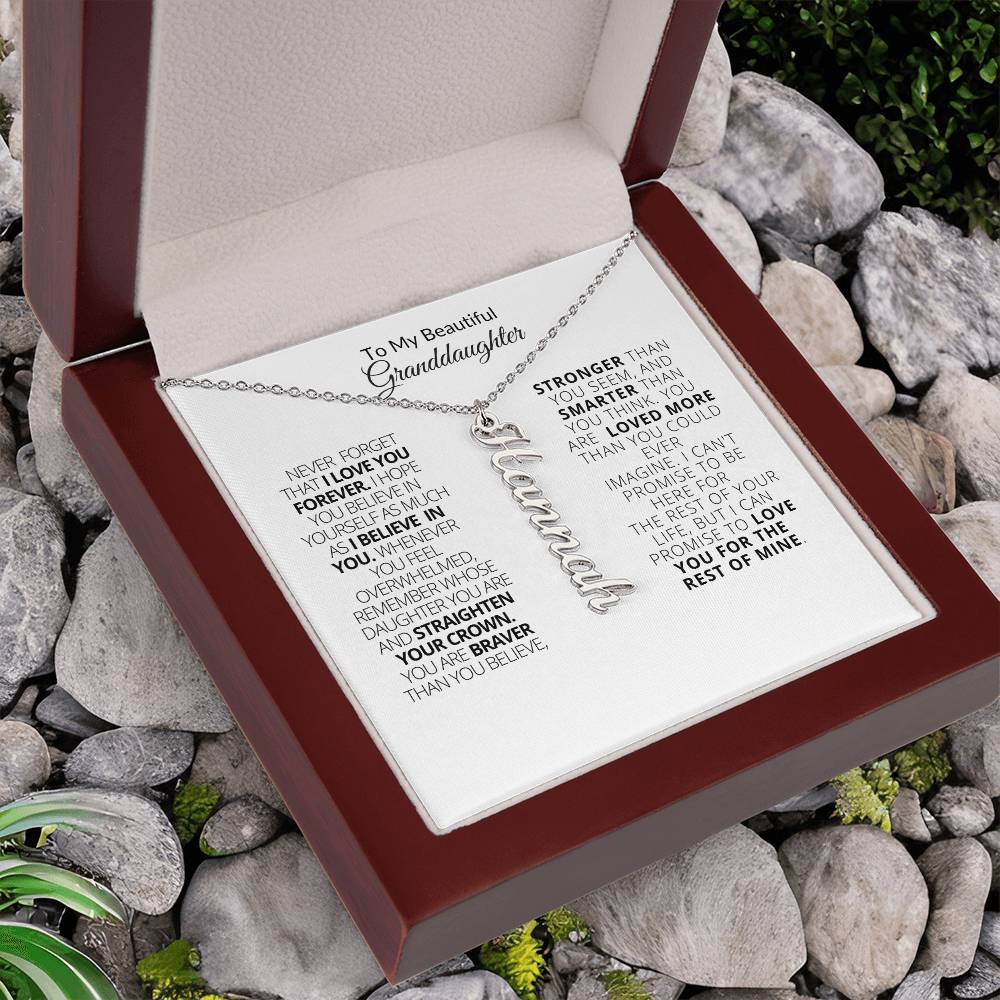 To My Beautiful
Granddaughter
NEVER FORGET
THAT I LOVE YOU
FOREVER. I HOPE
YOU BELIEVE IN
YOURSELF AS MUCH
AS I BELIEVE IN
YOU. WHENEVER
YOU FEEL
OVERWHELMED,
REMEMBER WHOSE
DAUGHTER YOU ARE
AND STRAIGHTEN
YOUR CROWN.
YOU ARE BRAVER
THAN YOU BELIEVE,
STRONGER THAN
YOU SEEM, AND
SMARTER THAN
YOU THINK. YOU
ARE LOVED MORE
THAN YOU COULD
EVER
IMAGINE. I CAN'T
PROMISE TO BE
HERE FOR
THE REST OF YOUR
LIFE, BUT I CAN
PROMISE TO LOVE
YOU FOR THE
REST OF MINE.
Hannah